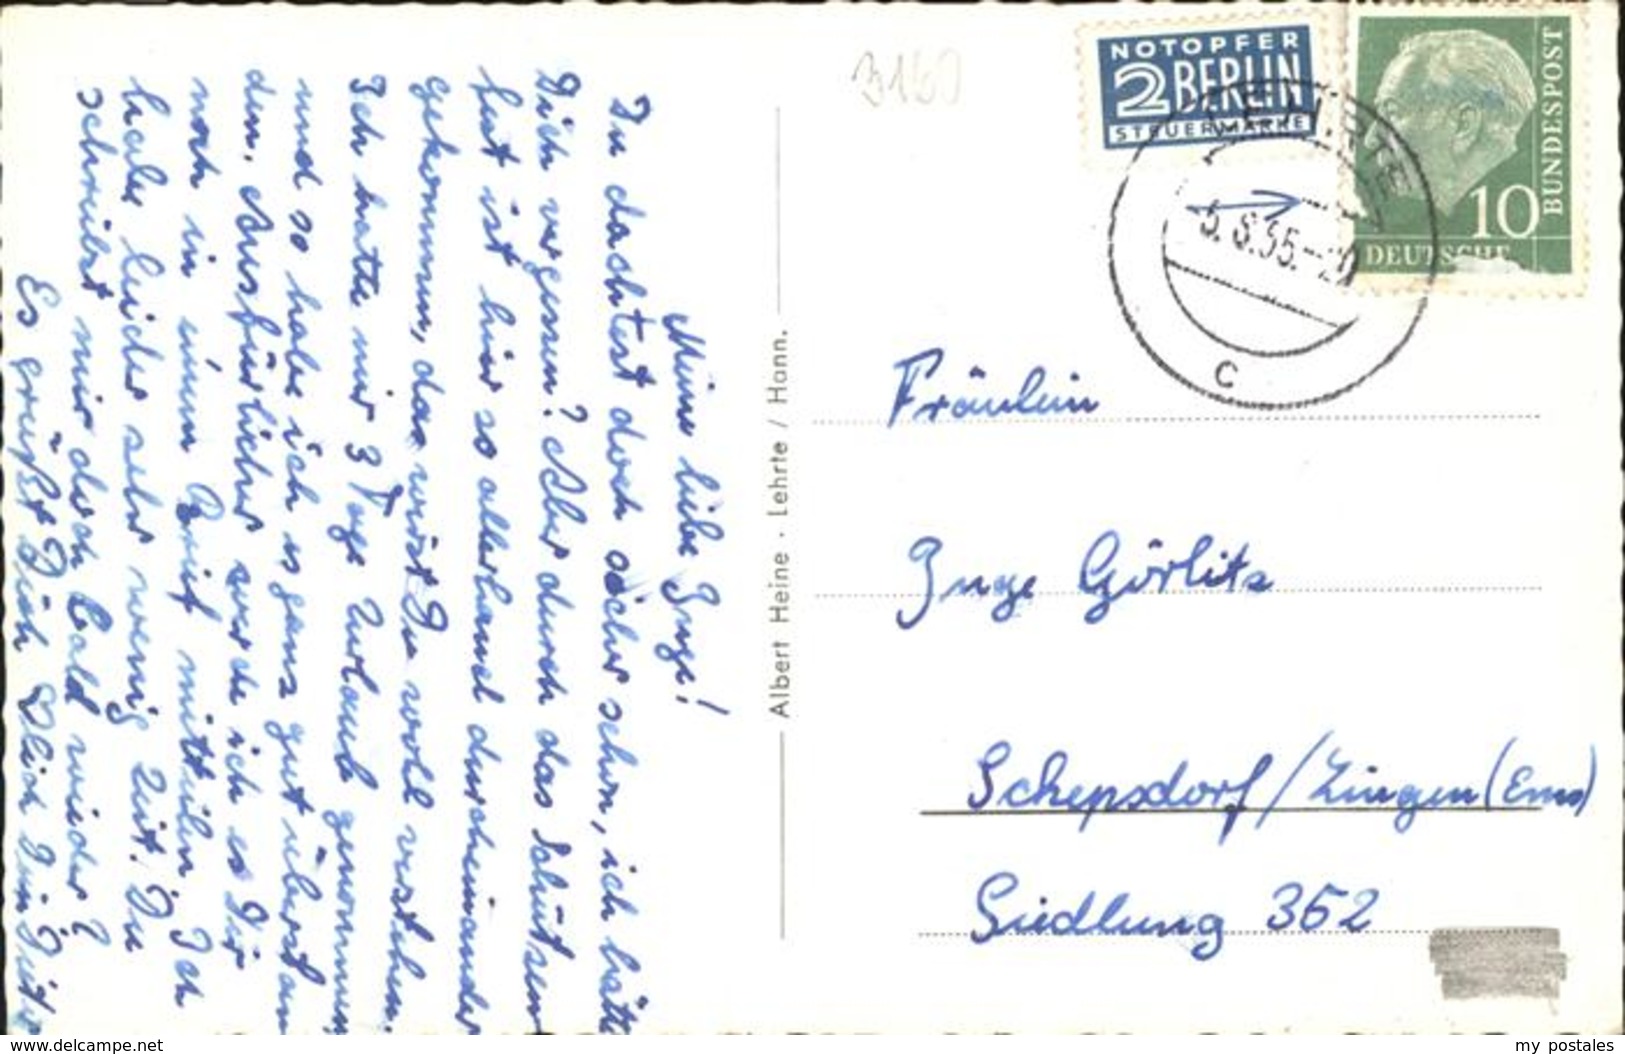 Meine liebe Inge!
Du dachtest doch sicher schon, ich hätte
Dich vergessen? Aber durch das Schützen-
fest ist hier so allerhand durcheinander
gekommen, das wirst Du wohl verstehen.
Ich hatte mir 3 Tage Urlaub genommen
und so habe ich es ganz gut überstan-
den. Ausführlicher werde ich es Dir
noch in einem Brief mitteilen. Ich
habe leider sehr wenig Zeit. Du
schreibst mir doch bald wieder?
Es grüßt Dich Dein Dieter
Albert Heine · Lehrte / Hann.
3160
NOTOPFER
2 BERLIN
STEUERMARKE
10
BUNDESPOST
DEUTSCHE
LEHRTE
5.8.55.-20
c
Fräulein
Inge Görlitz
Schepsdorf/Lingen (Ems)
Siedlung 352
www.delcampe.net
my postales